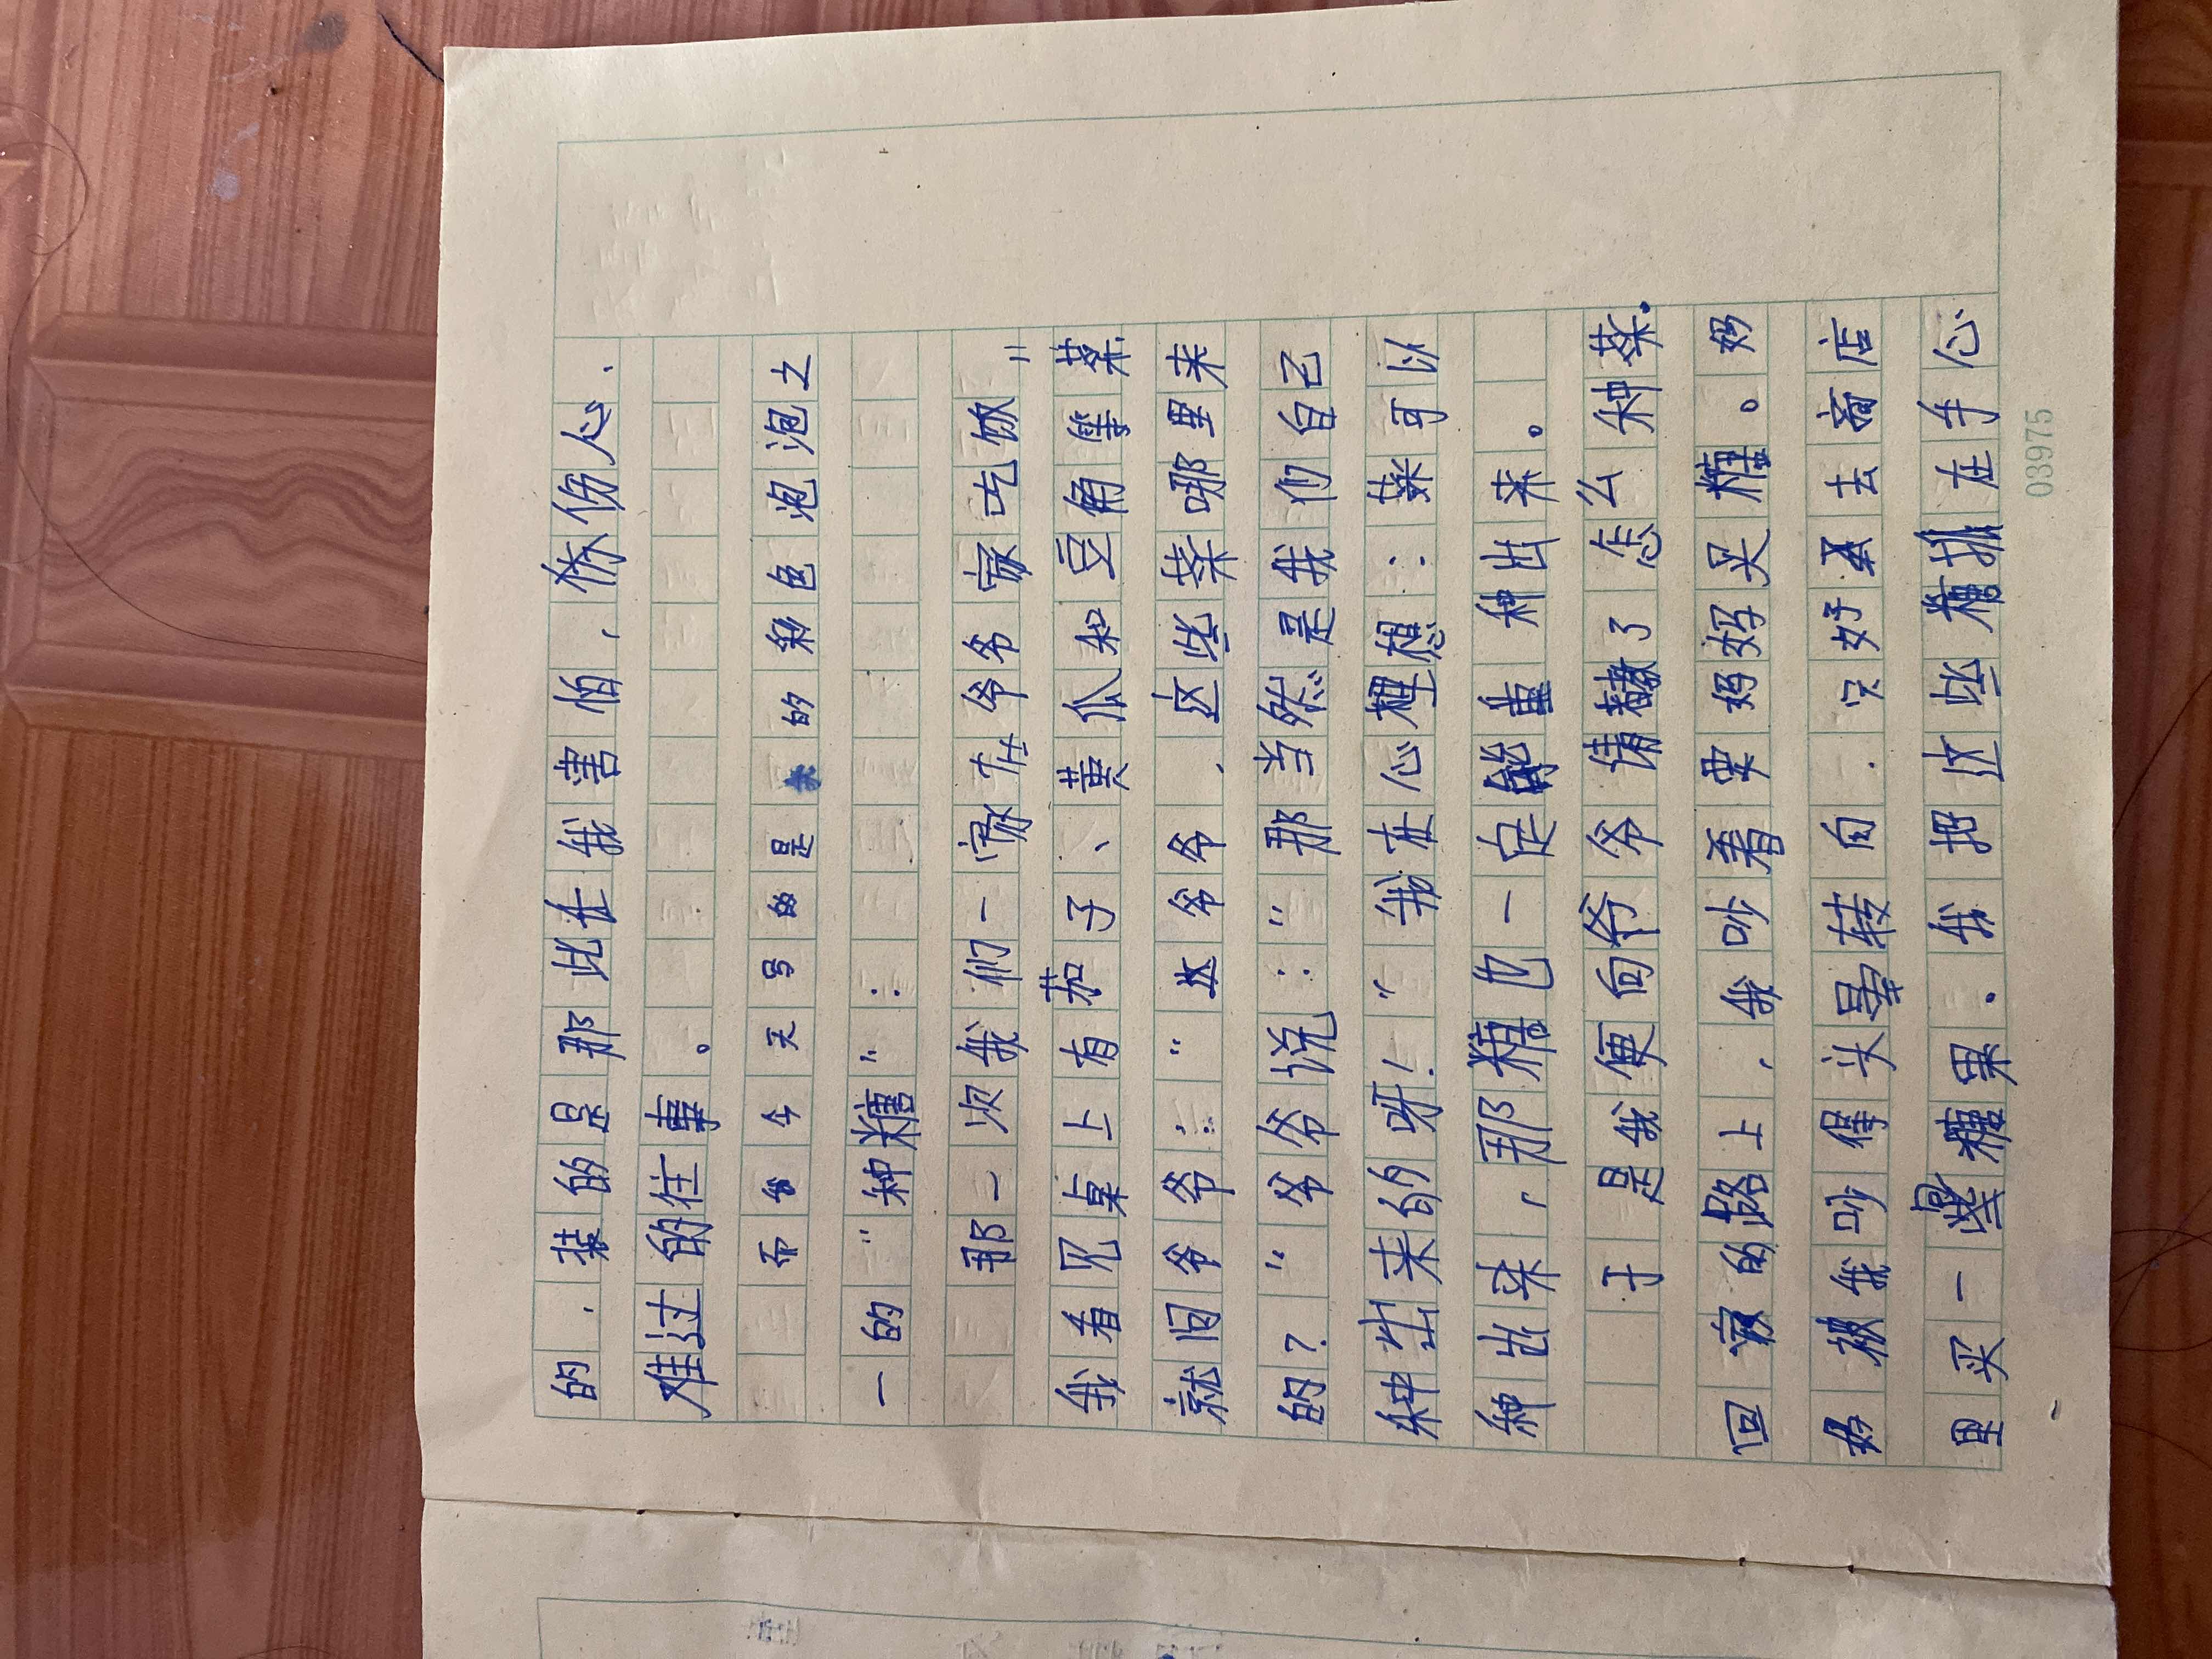 的，装的是那些在我害怕，伤心，
难过的往事。
而我今天写的是我的彩色泡泡之
一的“种糖”：
那一次我们一家在爷爷家吃饭，
我看见桌上有茄子、黄瓜和豆角等菜
就问爷爷：“爷爷，这些菜哪里来
的？”爷爷说：“那当然是我们自己
种出来的呀！”我在心裡想：菜可以
种出来，那糖也一定能种出来。
于是我便向爷爷请教了怎么种菜.
回家的路上，我吵着要妈妈买糖。妈
妈被我吵得头晕转向，只好去商店
里买一堆糖果。我把这些糖排在手心
03975